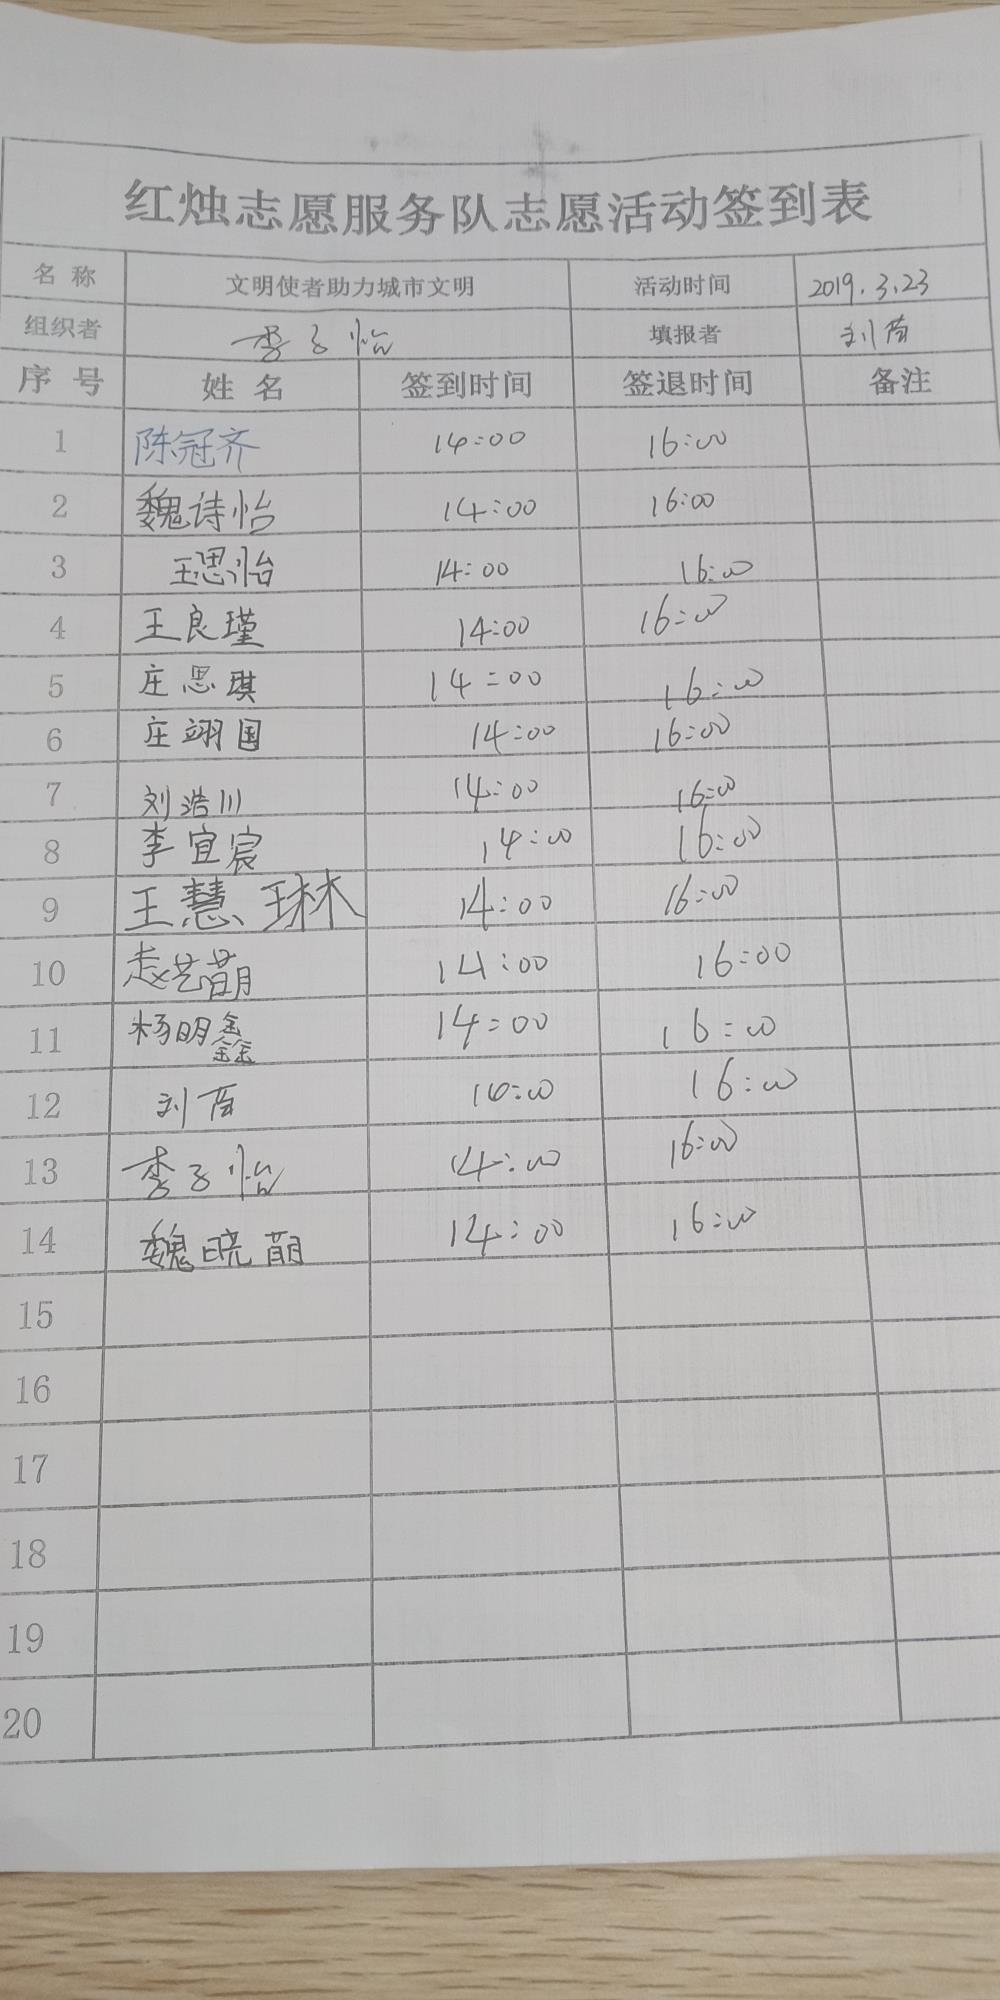 红烛志愿服务队志愿活动签到表
名 称 文明使者助力城市文明 活动时间 2019.3.23
组织者 李子怡 填报者 刘
序 号 姓 名 签到时间 签退时间 备注
1 陈冠齐 14:00 16:00
2 魏诗怡 14:00 16:00
3 王思怡 14:00 16:00
4 王良瑾 14:00 16:00
5 庄思琪 14:00 16:00
6 庄翊国 14:00 16:00
7 刘浩川 14:00 16:00
8 李宜宸 14:00 16:00
9 王慧琳 14:00 16:00
10 赵艺萌 14:00 16:00
11 杨明鑫 14:00 16:00
12 刘 14:00 16:00
13 李子怡 14:00 16:00
14 魏晓萌 14:00 16:00
15
16
17
18
19
20